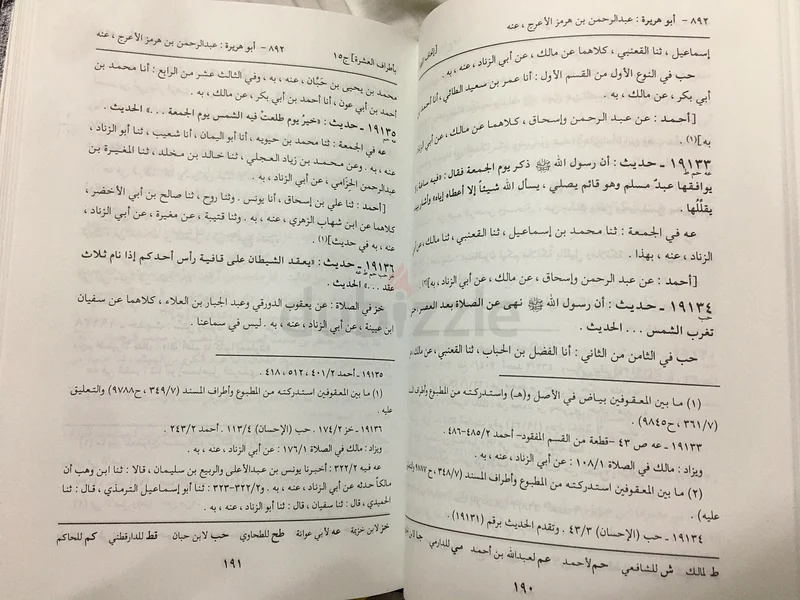 ٨٩٢ - أبو هريرة : عبدالرحمن بن هرمز الأعرج ، عنه
إسماعيل ، ثنا القعنبي ، كلاهما عن مالك ، عن أبي الزناد ، عنه ، به .
حب في النوع الأول من القسم الأول : أنا عمر بن سعيد الطائي ، أنا أحمد بن
أبي بكر ، عن مالك ، به .
[أحمد : عن عبد الرحمن وإسحاق ، كلاهما عن مالك ، عن أبي الزناد
به](١) .
١٩١٣٣ ـ حديث : أن رسول الله ﷺ ذكر يوم الجمعة فقال : «فيه ساعة
يوافقها عبدٌ مسلم وهو قائم يصلي ، يسأل الله شيئاً إلا أعطاه إياه» وأشار
يقلّلُها .
عه في الجمعة : ثنا محمد بن إسماعيل ، ثنا القعنبي ، ثنا مالك ، عن
الزناد ، عنه ، بهذا .
[أحمد : عن عبد الرحمن وإسحاق ، عن مالك ، عن أبي الزناد ، به](٢)
١٩١٣٤ ـ حديث : أن رسول الله ﷺ نهى عن الصلاة بعد العصر
حب
تغرب الشمس . . . الحديث .
حب في الثامن من الثاني : أنا الفضل بن الحباب ، ثنا القعنبي ، عن مالك
(١) ما بين المعقوفين بياض في الأصل و(هـ) واستدركته من المطبوع وأطراف
(٣٦١/٧ ، ح٩٨٤٥) .
١٩١٣٣ ـ عه ص ٤٣ -قطعة من القسم المفقود- أحمد ٤٨٥/٢-٤٨٦ .
ويزاد : مالك في الصلاة ١٠٨/١ : عن أبي الزناد ، عنه ، به .
(٢) ما بين المعقوفين استدركته من المطبوع وأطراف المسند (٣٤٨/٧ ، ح
عليه) .
١٩١٣٤ ـ حب (الإحسان) ٤٣/٣ . وتقدم الحديث برقم (١٩١٣١) .
ط لمالك ش للشافعي حم لأحمد عم لعبدالله بن أحمد مي للدارمي
١٩٠
٨٩٢- أبو هريرة : عبدالرحمن بن هرمز الأعرج ، عنه
بأطراف العشرة] ج١٥
محمد بن يحيى بن حَبَّان ، عنه ، به ، وفي الثالث عشر من الرابع : أنا محمد بن
أحمد بن أبي عون ، أنا أحمد بن أبي بكر ، عن مالك ، به .
١٩١٣٥ ـ حديث : «خيرُ يوم طلعتْ فيه الشمس يوم الجمعة . . .» الحديث .
عه حم
عه في الجمعة : ثنا محمد بن حيويه ، أنا أبو اليمان ، أنا شعيب ، ثنا أبو الزناد ،
عنه ، به . وعن محمد بن زياد العجلي ، ثنا خالد بن مخلد ، ثنا المغيرة بن
عبدالرحمن الحِزَامي ، عن أبي الزناد ، به .
[أحمد : ثنا علي بن إسحاق ، أنا يونس . وثنا روح ، ثنا صالح بن أبي الأخضر ،
كلاهما عن ابن شهاب الزهري ، عنه ، به . وثنا قتيبة ، عن مغيرة ، عن أبي الزناد ،
عنه ، به في حديث](١) .
١٩١٣٦ ـ حديث : «يعقد الشيطان على قافية رأس أحدكم إذا نام ثلاث
عقد . . .» الحديث .
خز في الصلاة : عن يعقوب الدورقي وعبد الجبار بن العلاء ، كلاهما عن سفيان
ابن عيينة ، عن أبي الزناد ، عنه ، به . ليس في سماعنا .
١٩١٣٥ ـ أحمد ٤٠١/٢ ، ٥١٢ ، ٤١٨ .
(١) ما بين المعقوفين استدركته من المطبوع وأطراف المسند (٣٤٩/٧ ، ح٩٧٨٨) والتعليق
عليه .
١٩١٣٦ ـ خز ١٧٤/٢ . حب (الإحسان) ١١٣/٤ . أحمد ٢٤٣/٢ .
ويزاد : مالك في الصلاة ١٧٦/١ : عن أبي الزناد ، عنه ، به .
عه فيه ٣٢٢/٢ : أخبرنا يونس بن عبدالأعلى والربيع بن سليمان ، قالا : ثنا ابن وهب أن
مالكاً حدثه عن أبي الزناد ، عنه ، به . و٣٢٢/٢-٣٢٣ : ثنا أبو إسماعيل الترمذي ، قال : ثنا
الحميدي ، قال : ثنا سفيان ، قال : ثنا أبو الزناد ، عنه ، به .
خز لابن خزيمة عه لأبي عوانة طح للطحاوي حب لابن حبان قط للدارقطني كم للحاكم
١٩١
dubizzle